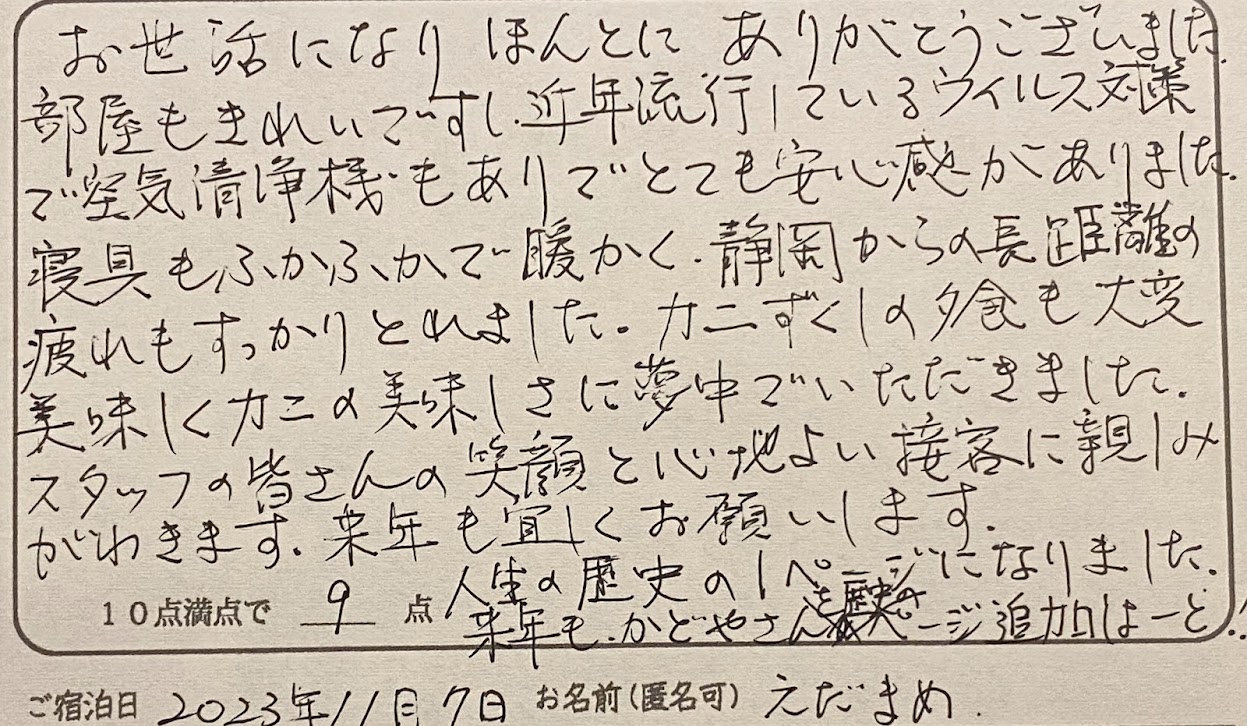 お世話になり ほんとに ありがとうございました
部屋もきれいですし、近年流行しているウイルス対策
で空気清浄機もありでとても安心感がありました。
寝具もふかふかで暖かく、静岡からの長距離の
疲れもすっかりとれました。カニずくしの夕食も大変
美味しくカニの美味しさに夢中でいただきました。
スタッフの皆さんの笑顔と心地よい接客に親しみ
がわきます。来年も宜しくお願いします。
人生の歴史の1ページになりました。
10点満点で 9 点
来年も、かどやさん ページ追加はーと!!
ご宿泊日 2023年11月7日 お名前(匿名可) えだまめ